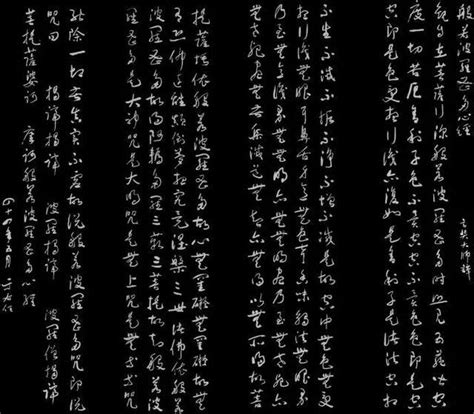 般若波羅蜜多心經
玄奘法師譯
觀自在菩薩行深般若波羅蜜多時照見五蘊皆空
度一切苦厄舍利子色不異空空不異色色即是空
空即是色受想行識亦復如是舍利子是諸法空相
不生不滅不垢不淨不增不減是故空中無色無受
想行識無眼耳鼻舌身意無色聲香味觸法無眼界
乃至無意識界無無明亦無無明盡乃至無老死亦
無老死盡無苦集滅道無智亦無得以無所得故菩
提薩埵依般若波羅蜜多故心無罣礙無罣礙故無
有恐怖遠離顛倒夢想究竟涅槃三世諸佛依般若
波羅蜜多故得阿耨多羅三藐三菩提故知般若
波羅蜜多是大神咒是大明咒是無上咒是無等等咒
能除一切苦真實不虛故說般若波羅蜜多咒即說
咒曰 揭諦揭諦 波羅揭諦 波羅僧揭諦
菩提薩婆訶 摩訶般若波羅蜜多心經
四十四年五月 于右任